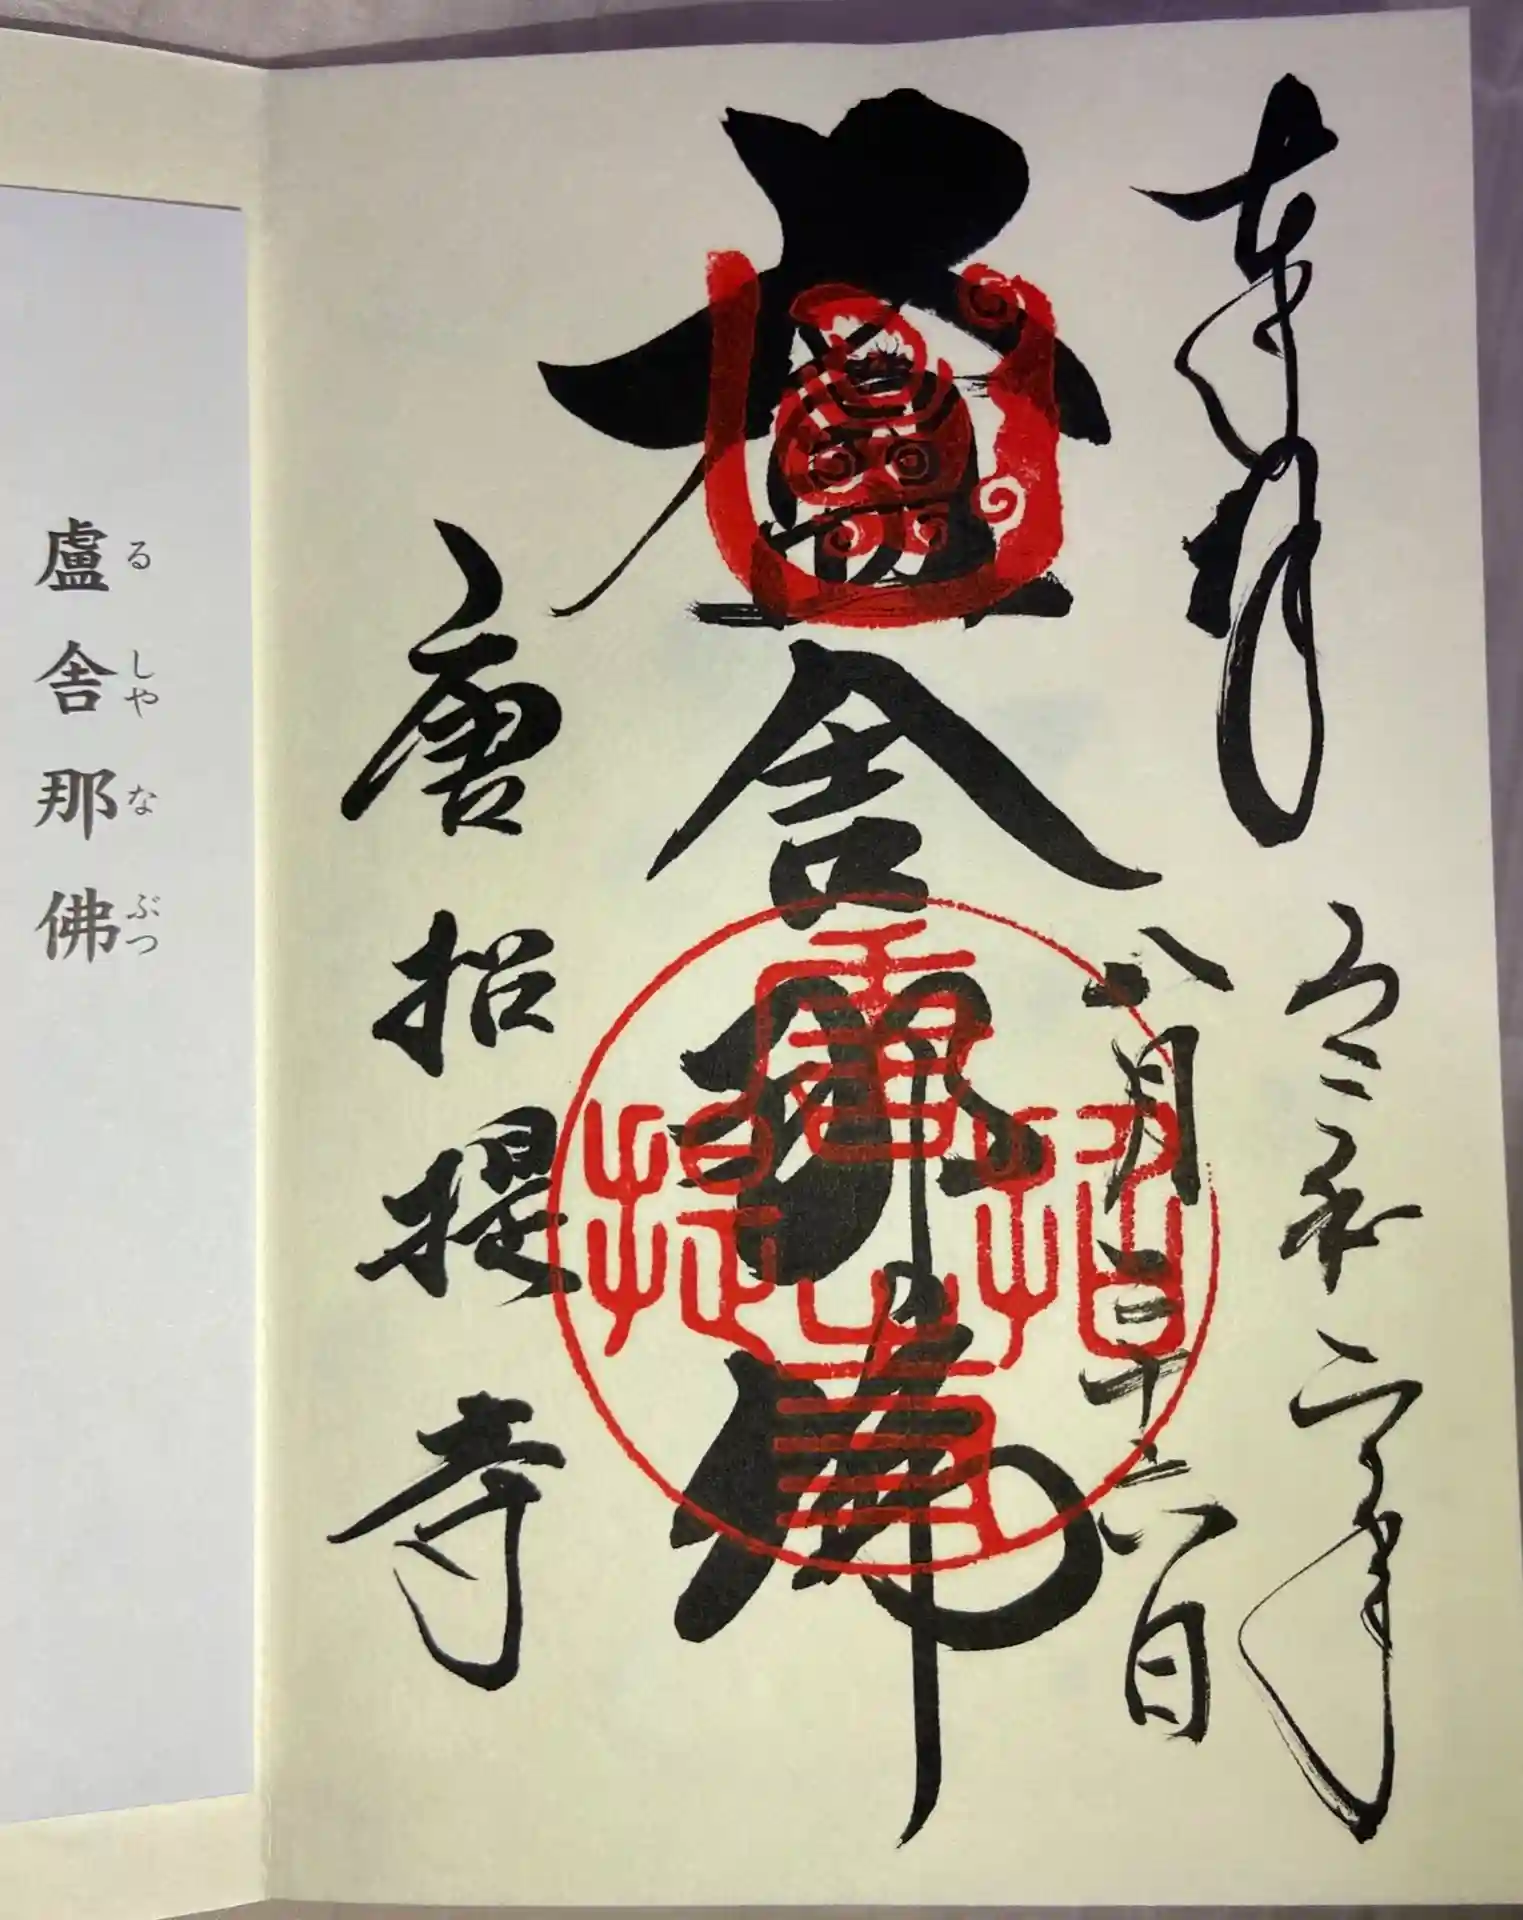 奉拝
令和二年
八月二十六日
盧舎那佛
唐招提寺
唐招提寺
盧舎那佛
るしゃなぶつ